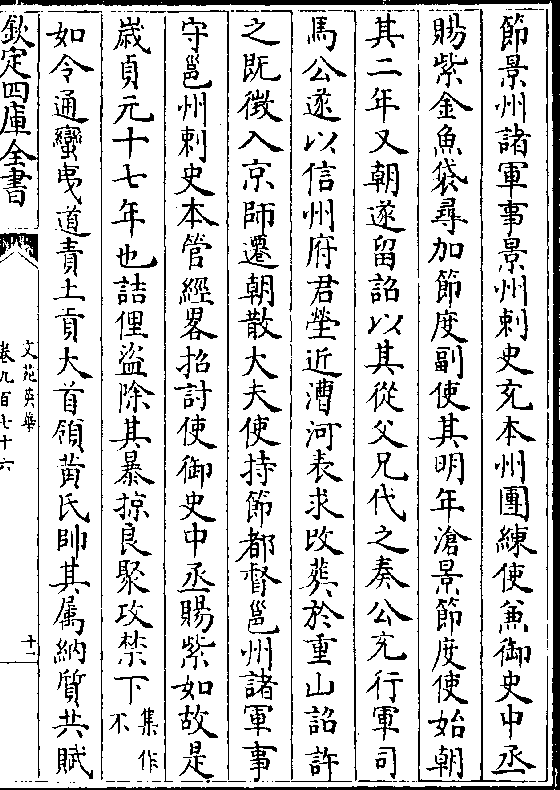 節景州諸軍事景州刺史充本州團練使兼御史中丞
賜紫金魚袋尋加節度副使其明年滄景節度使始朝
其二年又朝遂留詔以其從父兄代之奏公充行軍司
馬公遂以信州府君塋近漕河表求改葬於重山詔許
之既徵入京師遷朝散大夫使持節都督邕州諸軍事
守邕州刺史本管經畧招討使御史中丞賜紫如故是
歲貞元十七年也詰俚盜除其暴掠良聚攻禁下集作不
如令通蠻夷道責土貢大首領黃氏帥其属納質共賦
欽定四庫全書
文苑英華
卷九百七十六
十一